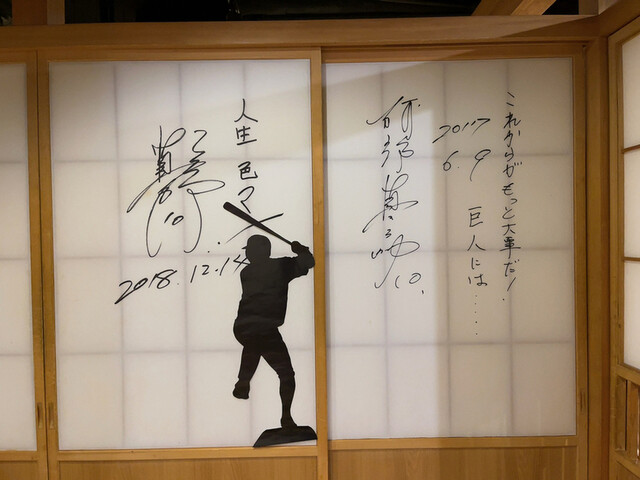 これからがもっと大事だ!
2017
6.9
巨人には......
阿部慎之助 10.
人生 色々
2018.12.14